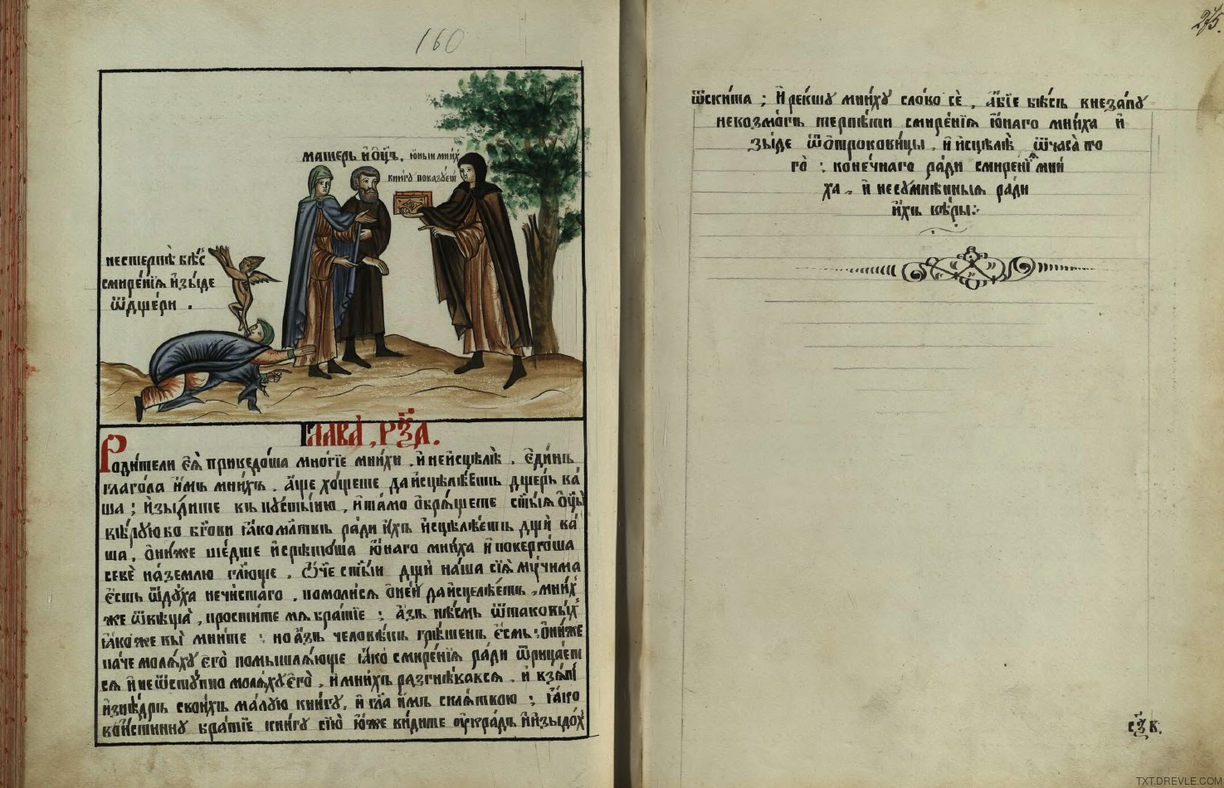 160
матерь и҆ ѻ҆ц҃ъ. ю҆ныи мнихъ
книгу показуетъ
нестерпѣ бѣсъ
смире́нїѧ и҆зы́де
ѿ дщери.
Глава̀, р҃ѯа.
Роди́тели є҆ѧ̀ приведоша мно́гїе мни́хи. и҆ неи҆сцѣлѣ. є҆ди́нъ
глагола и҆̀мъ мни́хъ. а҆́ще хо́щете да и҆сцѣлѣ́етъ дщерь ва́
ша; и҆зы́дите въ пусты́ню, и҆ тамо ѡ҆брѧ́щете ст҃ы́ѧ ѻ҆ц҃ы̀
вѣ́рую во бг҃ови ꙗ҆́ко мл҃твъ ради и҆́хъ и҆сцѣлѣ́етъ дщѝ ва́
ша. ѻ҆ни́же ше́дше и҆ срѣтоша ю҆́наго мни́ха и҆ поверго́ша
себѐ на зе́млю гл҃ю́ще. ѻ҆́ч҃е ст҃ы́и дщѝ на́ша сїѧ̀ му́чима
є҆́сть ѿ дꙋ́ха нечи́стаго. помоли́сѧ ѻ҆ не́й да и҆сцелѣ́етъ. мни́х
же ѿвѣща̀, прости́те мѧ бра́тїе; а҆́зъ нѣ́смь ѿ таковы́х
ꙗ҆́коже вы̀ мните: но а҆́зъ человѣ́къ грѣ́шенъ є҆́смь: ѻ҆ни́же
паче молѧ́ху є҆го̀ помышлѧ́юще ꙗ҆́ко смире́нїѧ ра́ди ѿрица́ет
сѧ и҆ неѿсту́пно молѧ́ху є҆го̀, и҆ мни́хъ разгнѣ́вавсѧ. и҆ взѧ́тъ
и҆знѣ́дръ свои́хъ ма́лую кни́гу, и҆ гл҃а и҆̀мъ склѧ́твою; ꙗ҆́ко
вои҆́стинну бра́тїе кни́гу сїю̀ ю҆́же ви́дите ᲂу҆кра́дъ и҆ и҆зыдо́х
275.
ѿ скита; И҆ ре́кшу мни́ху сло́во сѐ, а҆́бїе бѣ́съ внеза́пу
невозмо́гъ терпѣ́ти смире́нїѧ ю҆́наго мни́ха и҆
зы́де ѿ ѻтрокови́цы. и҆ и҆сцѣлѣ̀ ѿ часа̀ то
го̀: коне́чнаго ра́ди смире́нїѧ мни́
ха. и҆ несумнѣ́нныѧ ра́ди
и҆́хъ вѣ́ры:
TXT.DREVLE.COM